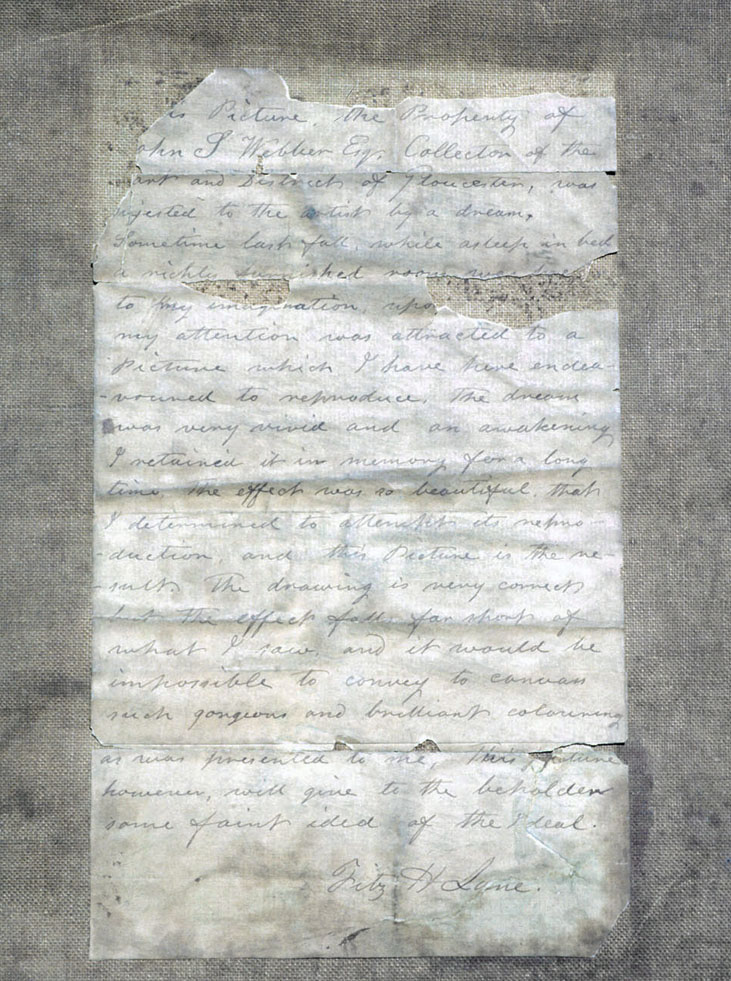 is Picture, the Property of
ohn S Webber Esq. Collector of the
and Districts of Gloucester, was
gested to the artist by a dream.
Sometime last fall, while asleep in bed
a richly furnished room was
to my imagination, upo
my attention was attracted to a
Picture which I have here endea-
-voured to reproduce. The dream
was very vivid and on awakening
I retained it in memory for a long
time. The effect was so beautiful that
I determined to attempt its repro-
-duction, and this Picture is the re-
-sult. The drawing is very correct
but the effect falls far short of
what I saw, and it would be
impossible to convey to canvass
such gorgeous and brilliant colouring
as was presented to me. This picture
however, will give to the beholder
some faint idea of the Ideal.
Fitz H Lane.